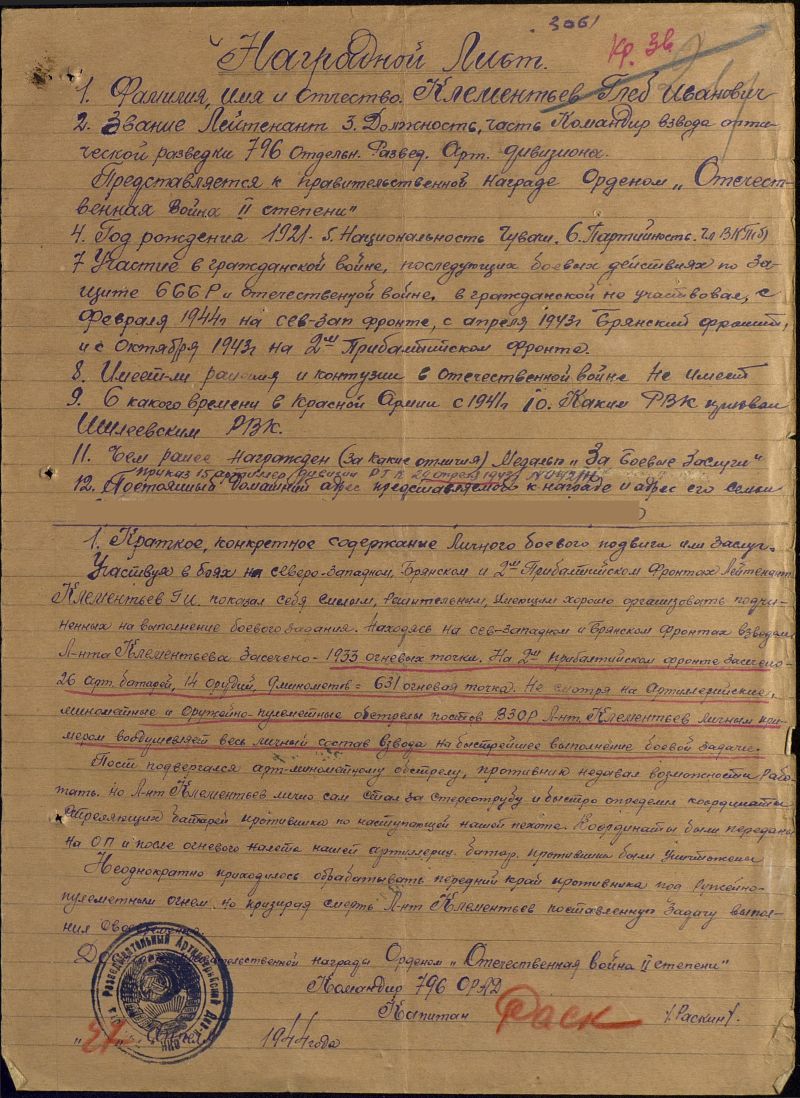 3061
Кр. Зв
Наградной Лист.
1. Фамилия, имя и отчество. Клементьев Глеб Иванович
2. Звание Лейтенант 3. Должность, часть Командир взвода опти-
ческой разведки 796 Отдельн. Развед. Арт. дивизиона.
Представляется к правительственной награде Орденом „Отечест-
венная Война II степени"
4. Год рождения 1921- 5. Национальность Чуваш. 6. Партийность. Чл ВКП(б)
7 Участие в гражданской войне, последующих боевых действиях по За-
щите СССР и отечественной войне. в гражданской не участвовал, с
Февраля 1944г на сев-зап фронте, с апреля 1943г Брянский фронт,
и с Октября 1943г на 2ом Прибалтийском Фронте.
8. Имеет-ли ранения и контузии в отечественной войне Не имеет
9. С какого времени в Красной Армии с 1941г 10. Каким РВК призван
РВК.
11. Чем ранее награжден (за какие отличия) Медалью „За Боевые Заслуги"
Приказ 15 дивизии РГК 29 апреля
12. Постоянный домашний адрес представляемого к награде и адрес его семьи
1. Краткое, конкретное содержание личного боевого подвига или заслуг.
Участвуя в боях на Северо-Западном, Брянском и 2ом Прибалтийском Фронтах Лейтенант
Клементьев Г.И. показал себя смелым, решительным, умеющим хорошо организовать подчи-
ненных на выполнение боевого задания. Находясь на сев-западном и Брянском Фронтах взводом
Л-нта Клементьева Засечено - 1933 огневых точки. На 2ом прибалтийском фронте засечено-
26 арт. батарей, 14 орудий, 9 минометов = 631 огневая точка. Не смотря на Артиллерийские,
минометные и Оружейно-пулеметные обстрелы постов ВЗОР Л-нт. Клементьев личным при-
мером воодушевляет весь личный состав взвода на быстрейшее выполнение боевой задачи.
Пост подвергался арт-минометному обстрелу, противник недавал возможности Рабо-
тать. Но Л-нт Клементьев лично сам стал за стереотрубу и быстро определил координаты
стреляющих батарей противника по наступающей нашей пехоте. Координаты были переданы
на ОП и после огневого налета нашей артиллерии. батар. противника были Уничтожены
Неоднократно приходилось обрабатывать передний край противника под Ружейно-
пулеметным огнем. но призирая смерть Л-нт Клементьев поставленную Задачу выпол-
нял своевременно.
правительственной награды Орденом „Отечественная война II степени"
Командир 796 ОРАД
Капитан Раск /Раскин/.
1944 года
Разведывательный Артиллерийский Див-н